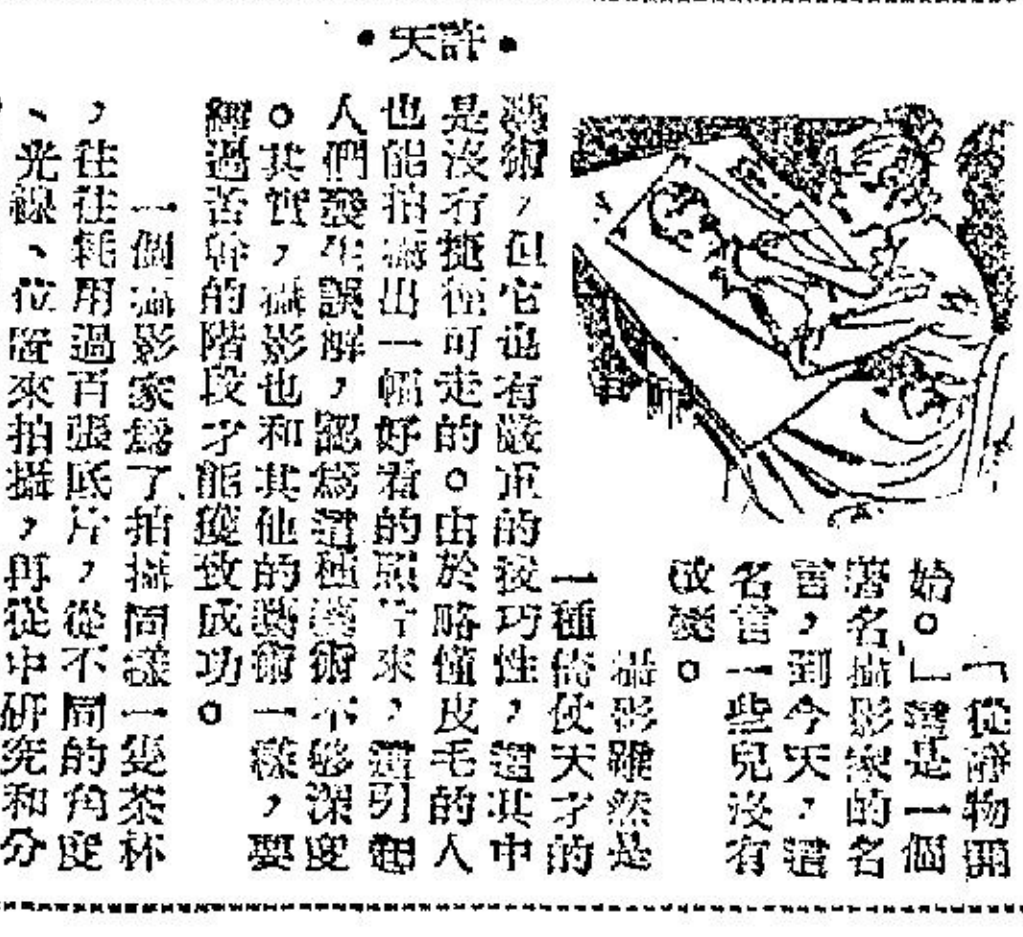 •許天•
「從靜物開
始。」這是一個
著名攝影家的名
言，到今天，這
名言一些兒沒有
改變。
攝影雖然是
一種倚仗天才的
藝術，但它也有嚴重的技巧性，這其中
是沒有捷徑可走的。由於略懂皮毛的人
也能拍攝出一幅好看的照片來，遂引起
人們發生誤解，認爲這種藝術不够深度
。其實，攝影也和其他的藝術一樣，要
經過苦幹的階段才能獲致成功。
一個攝影家爲了拍攝同樣一隻茶杯
，往往耗用過百張底片，從不同的角度
、光線、位置來拍攝，再從中研究和分